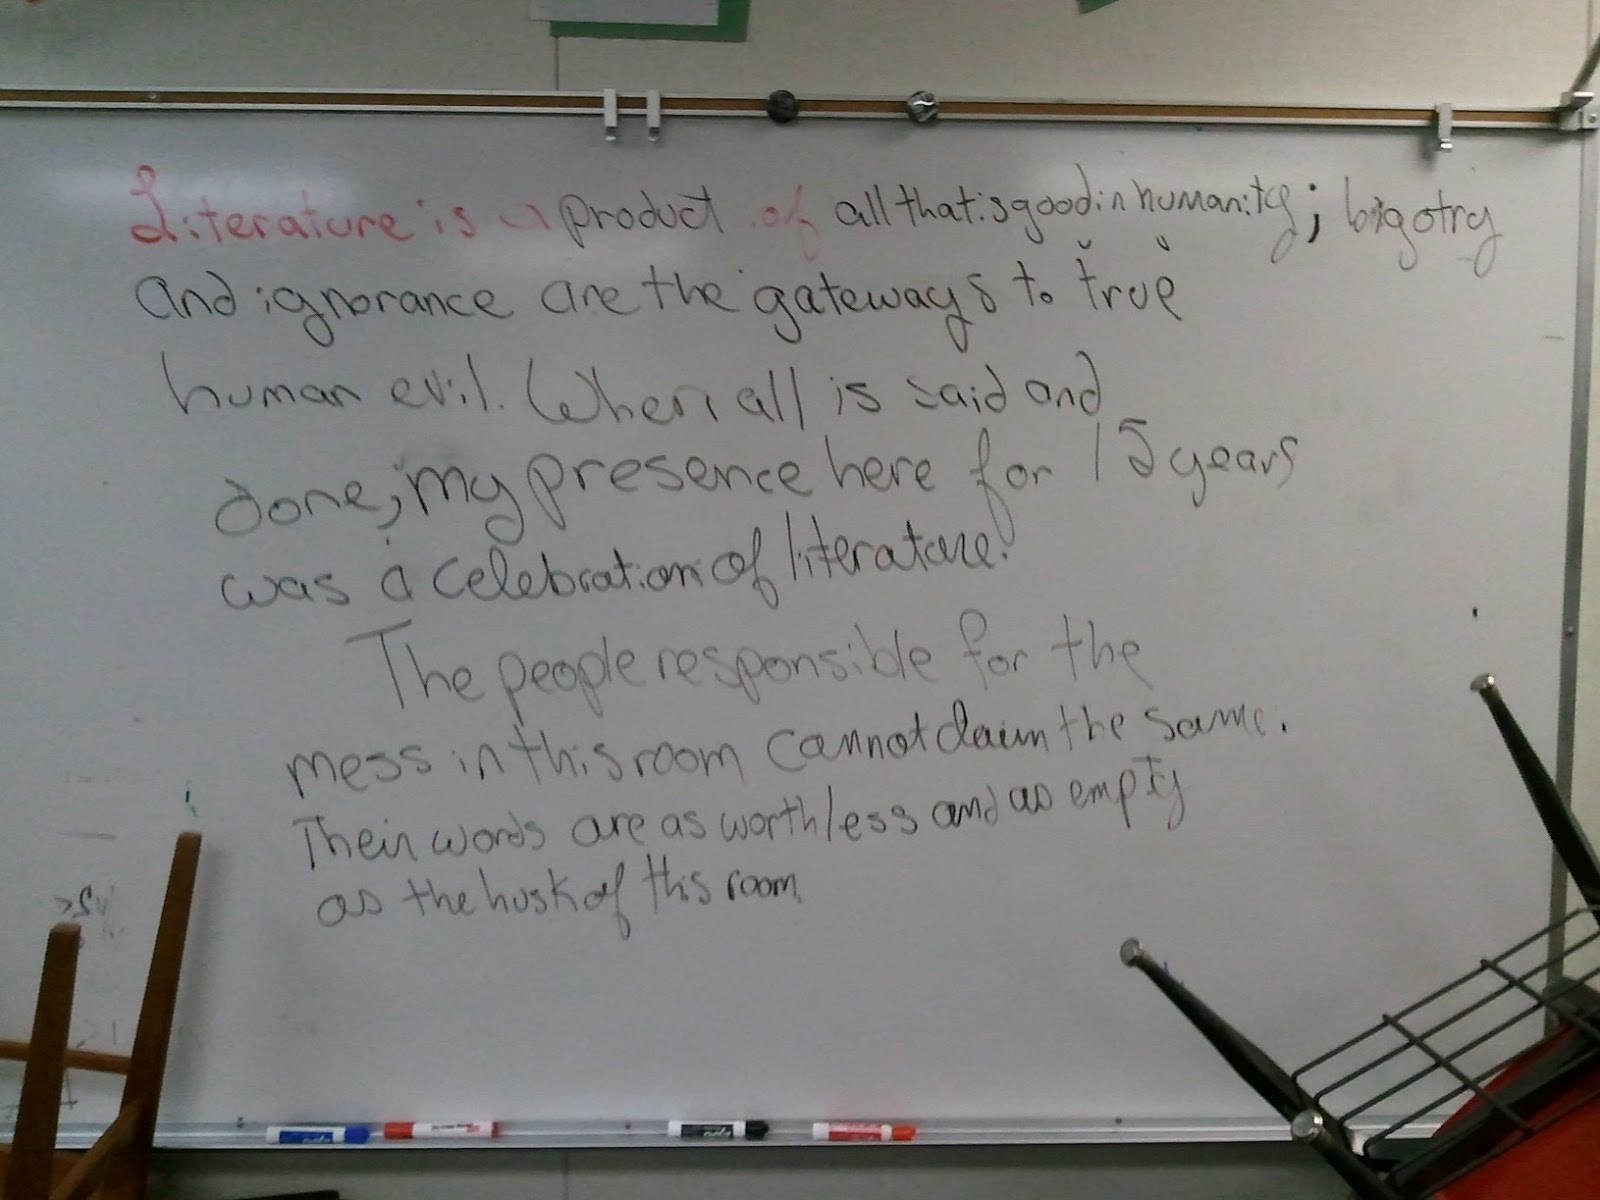 Literature is a product of all that is good in humanity; bigotry
and ignorance are the gateways to true
human evil. When all is said and
done, my presence here for 15 years
was a celebration of literature.
The people responsible for the
mess in this room cannot claim the same.
Their words are as worthless and as empty
as the husk of this room.